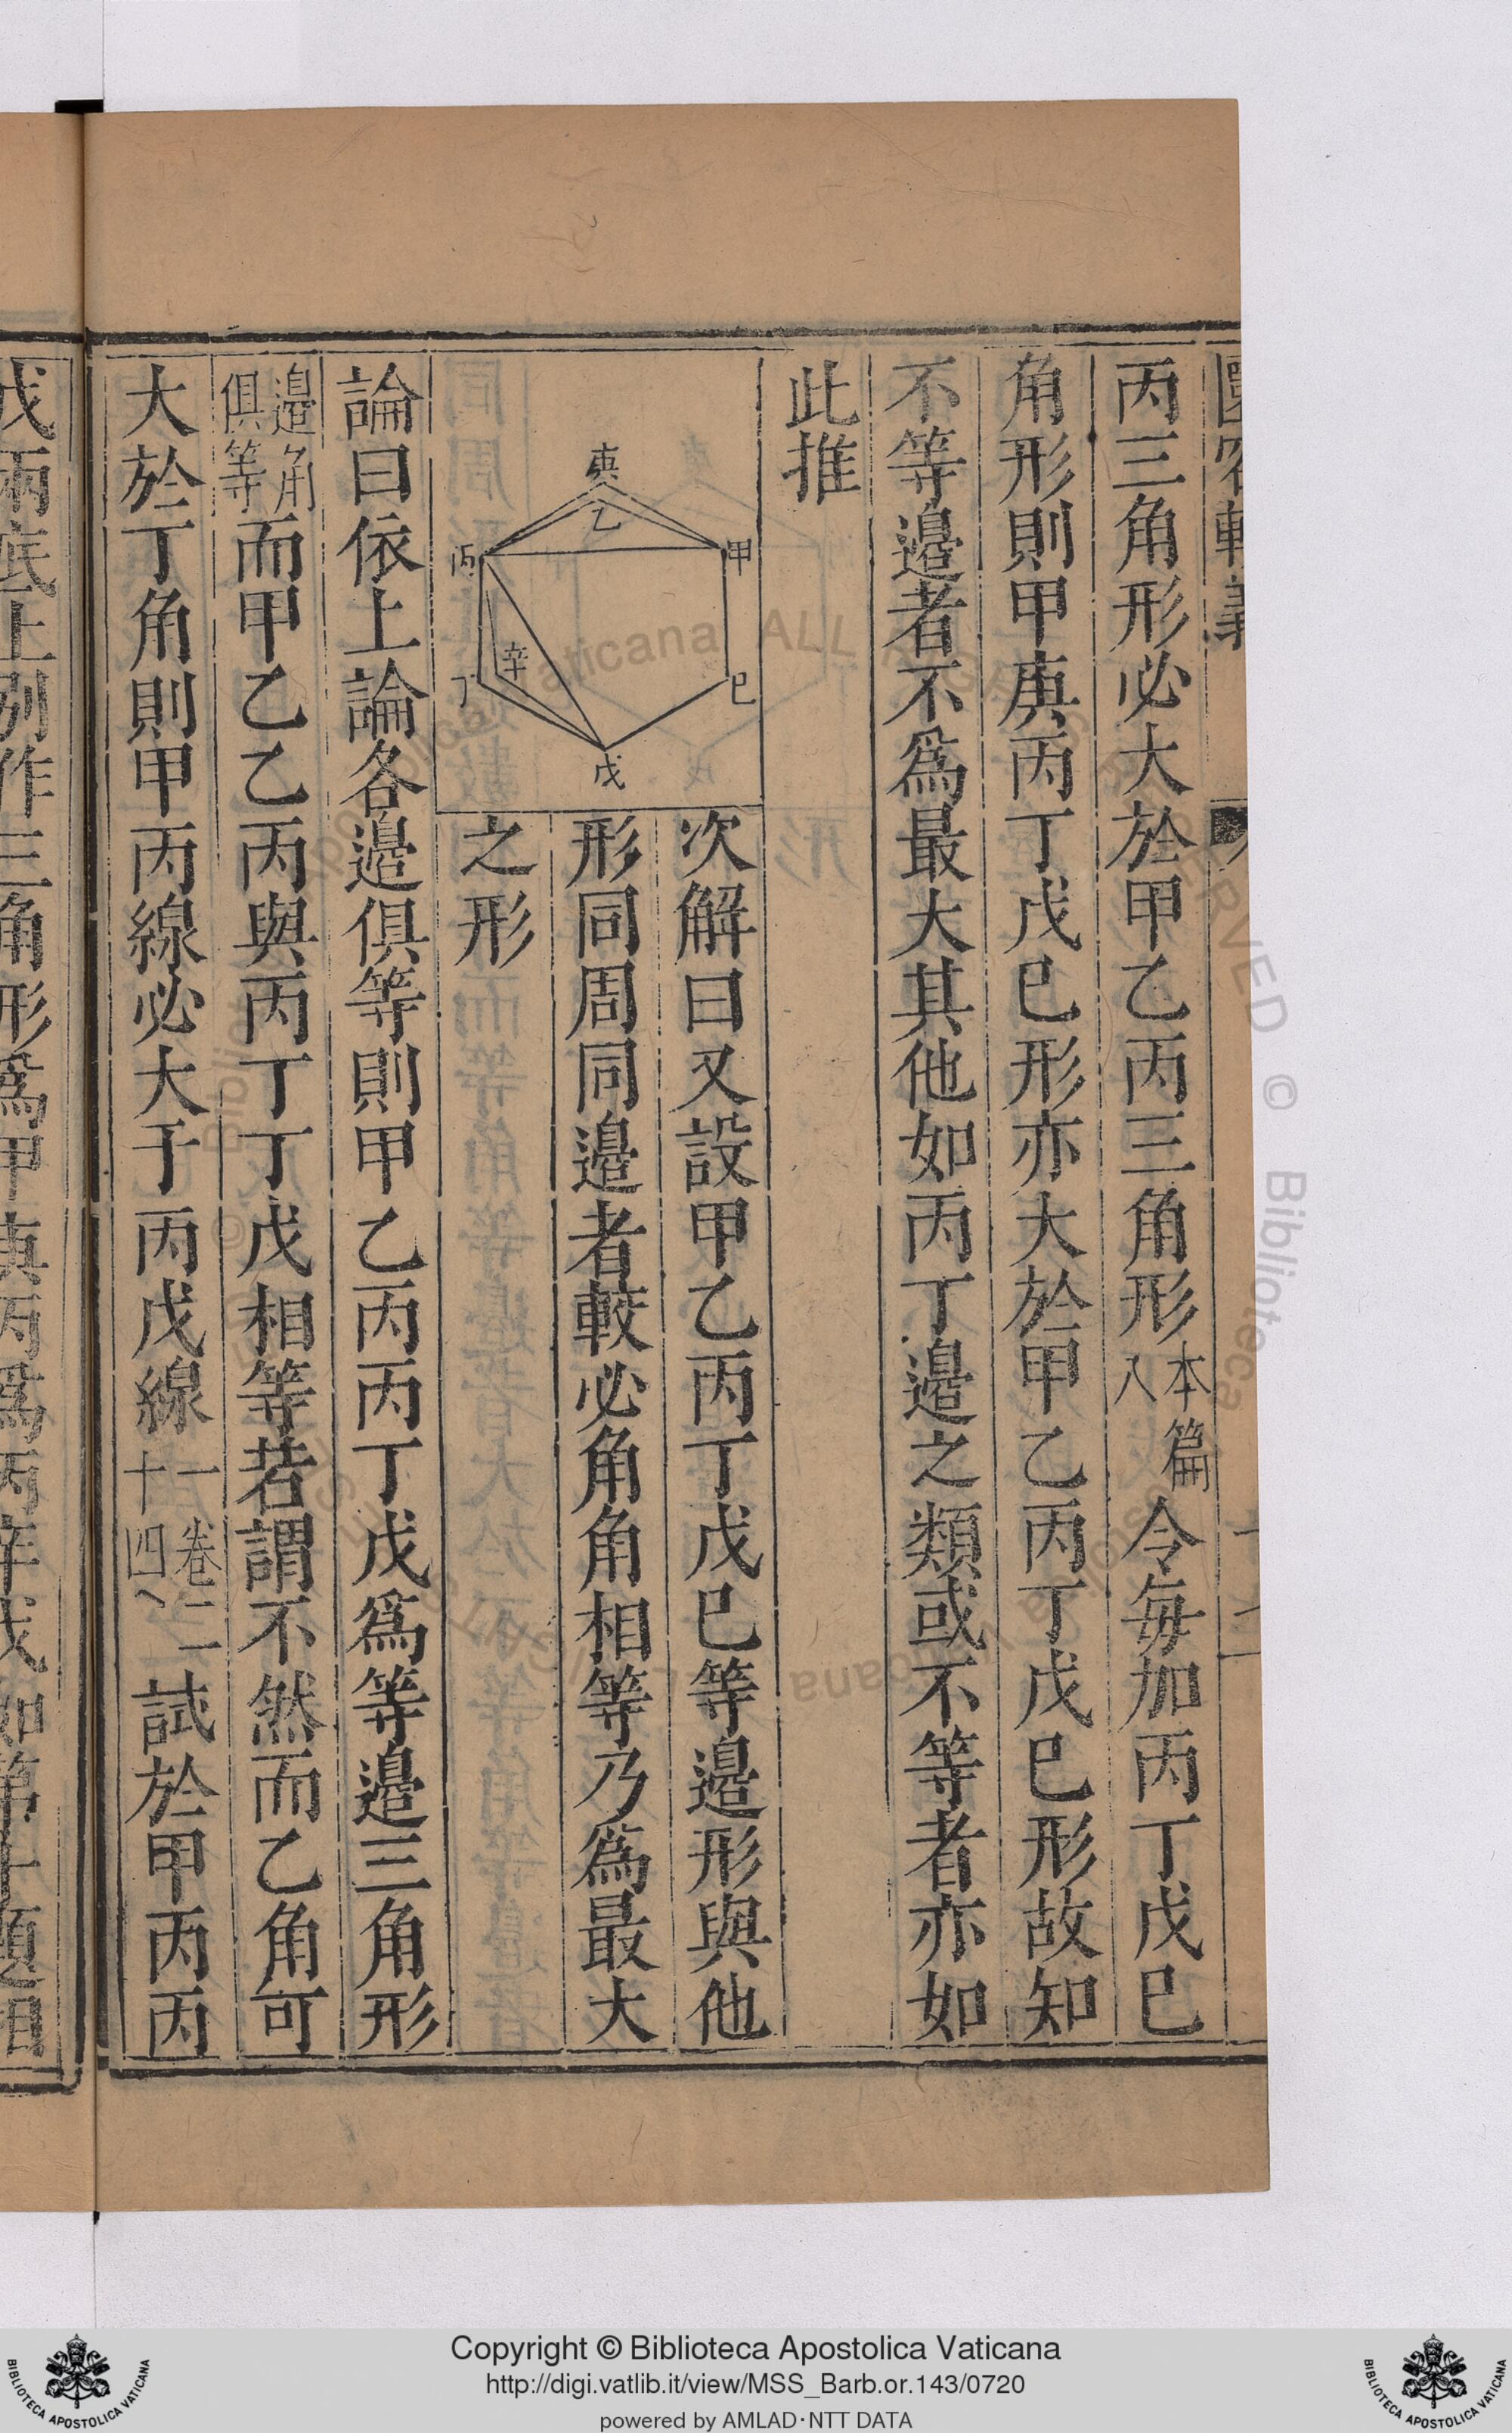 圜容較義
丙三角形必大於甲乙丙三角形本篇八令每加丙丁戊巳
角形則甲庚丙丁戊巳形亦大於甲乙丙丁戊巳形故知
不等邉者不爲最大其他如丙丁邉之類或不等者亦如
此推
庚
乙
甲
丙
辛
丁
巳
戊
次解曰又設甲乙丙丁戊巳等邉形與他
形同周同邉者較必角角相等乃爲最大
之形
論曰依上論各邉俱等則甲乙丙丙丁戊爲等邉三角形
邉角俱等而甲乙乙丙與丙丁丁戊相等若謂不然而乙角可
大於丁角則甲丙線必大于丙戊線一卷二十四試於甲丙丙
戊兩底上別作三角形爲甲庚丙爲丙辛戊如第十題相
Copyright © Biblioteca Apostolica Vaticana
http://digi.vatlib.it/view/MSS_Barb.or.143/0720
powered by AMLAD·NTT DATA
BIBLIOTECA APOSTOLICA VATICANA
BIBLIOTECA APOSTOLICA VATICANA